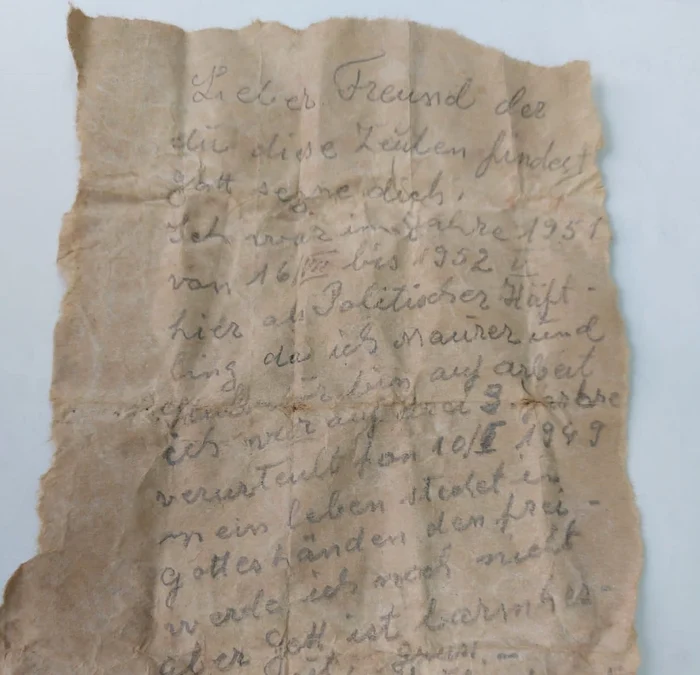 Lieber Freund der
du diese Zeilen findest
Gott segne dich.
Ich war im Jahre 1951
von 16/III bis 1952 V
hier als Politischer Häft-
ling da ich Maurer und
bin auf arbeit
ich war auf 3 Jahre
verurteult fon 10/I 1949
mein leben stehet in
gotteshänden den frei-
werde ich noch nicht
aber gott ist barmher-